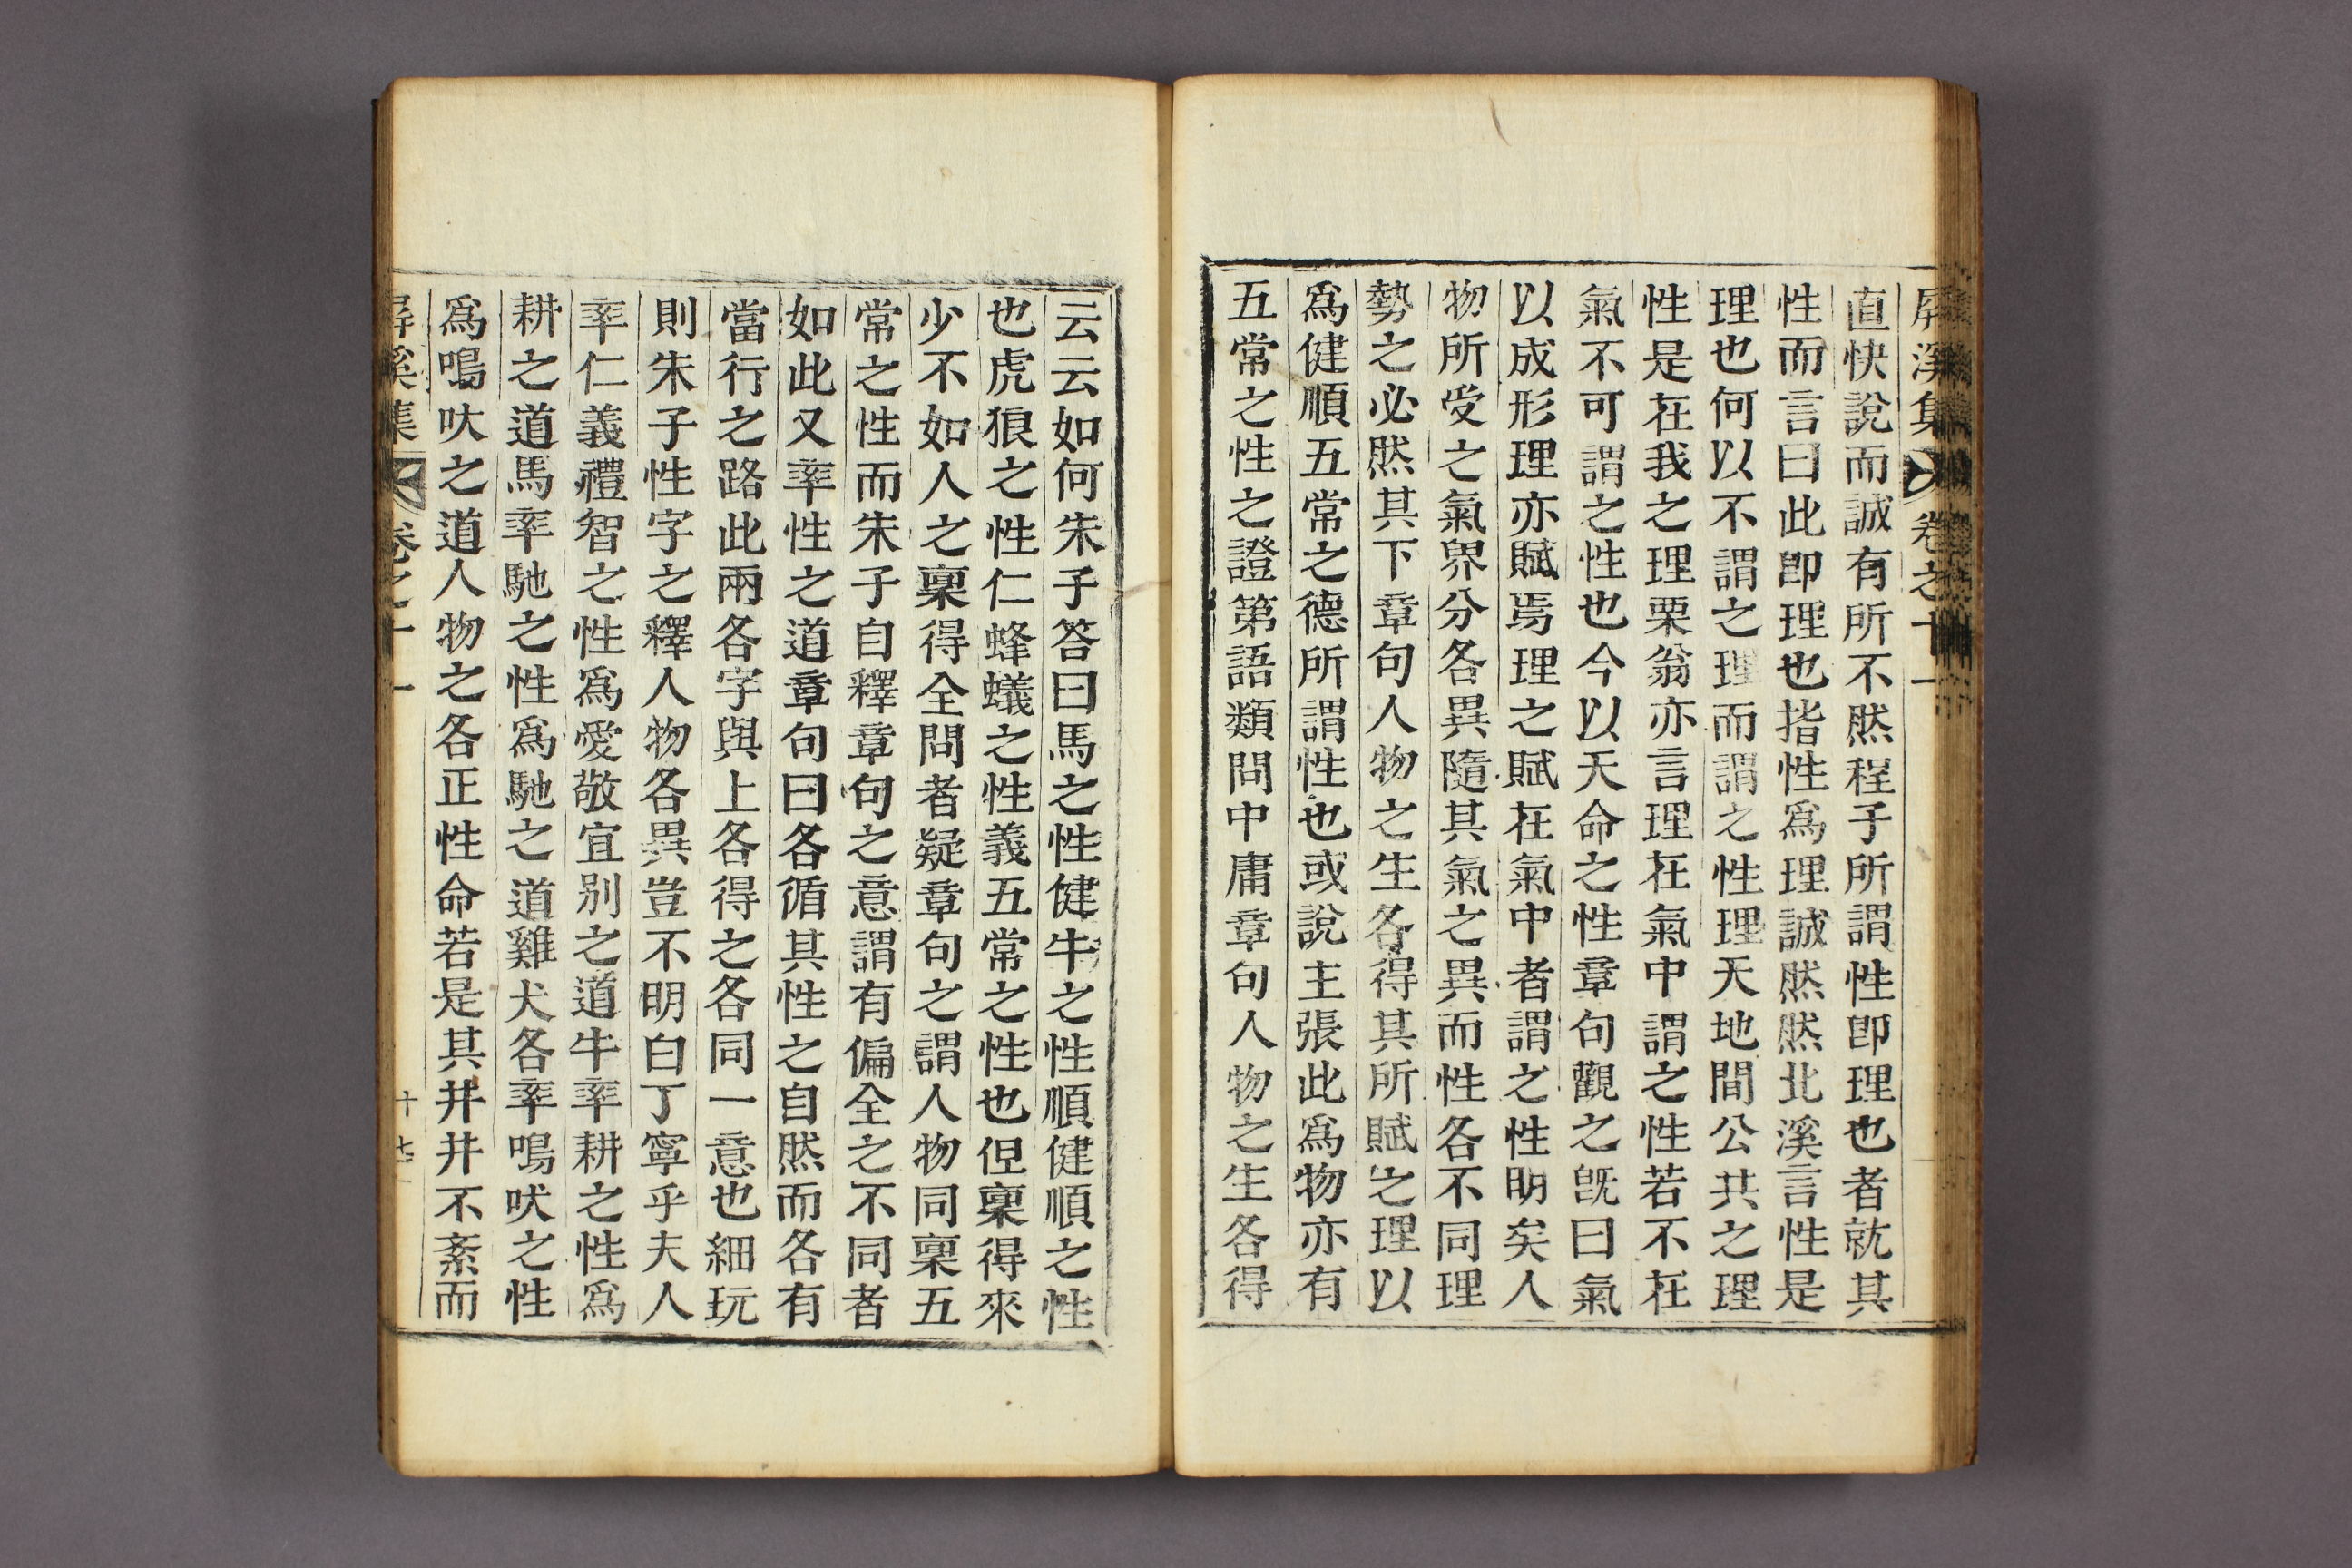 屏溪集 卷之十一
直快說而誠有所不然程子所謂性卽理也者就其
性而言曰此卽理也指性爲理誠然然北溪言性是
理也何以不謂之理而謂之性理天地間公共之理
性是在我之理栗翁亦言理在氣中謂之性若不在
氣不可謂之性也今以天命之性章句觀之旣曰氣
以成形理亦賦焉理之賦在氣中者謂之性明矣人
物所受之氣界分各異隨其氣之異而性各不同理
勢之必然其下章句人物之生各得其所賦之理以
爲健順五常之德所謂性也或說主張此爲物亦有
五常之性之證第語類問中庸章句人物之生各得
云云如何朱子答曰馬之性健牛之性順健順之性
也虎狼之性仁蜂蟻之性義五常之性也但稟得來
少不如人之稟得全問者疑章句之謂人物同稟五
常之性而朱子自釋章句之意謂有偏全之不同者
如此又率性之道章句曰各循其性之自然而各有
當行之路此兩各字與上各得之各同一意也細玩
則朱子性字之釋人物各異豈不明白丁寧乎夫人
率仁義禮智之性爲愛敬宜別之道牛率耕之性爲
耕之道馬率馳之性爲馳之道雞犬各率鳴吠之性
爲鳴吠之道人物之各正性命若是其井井不紊而
屏溪集 卷之十一 十七